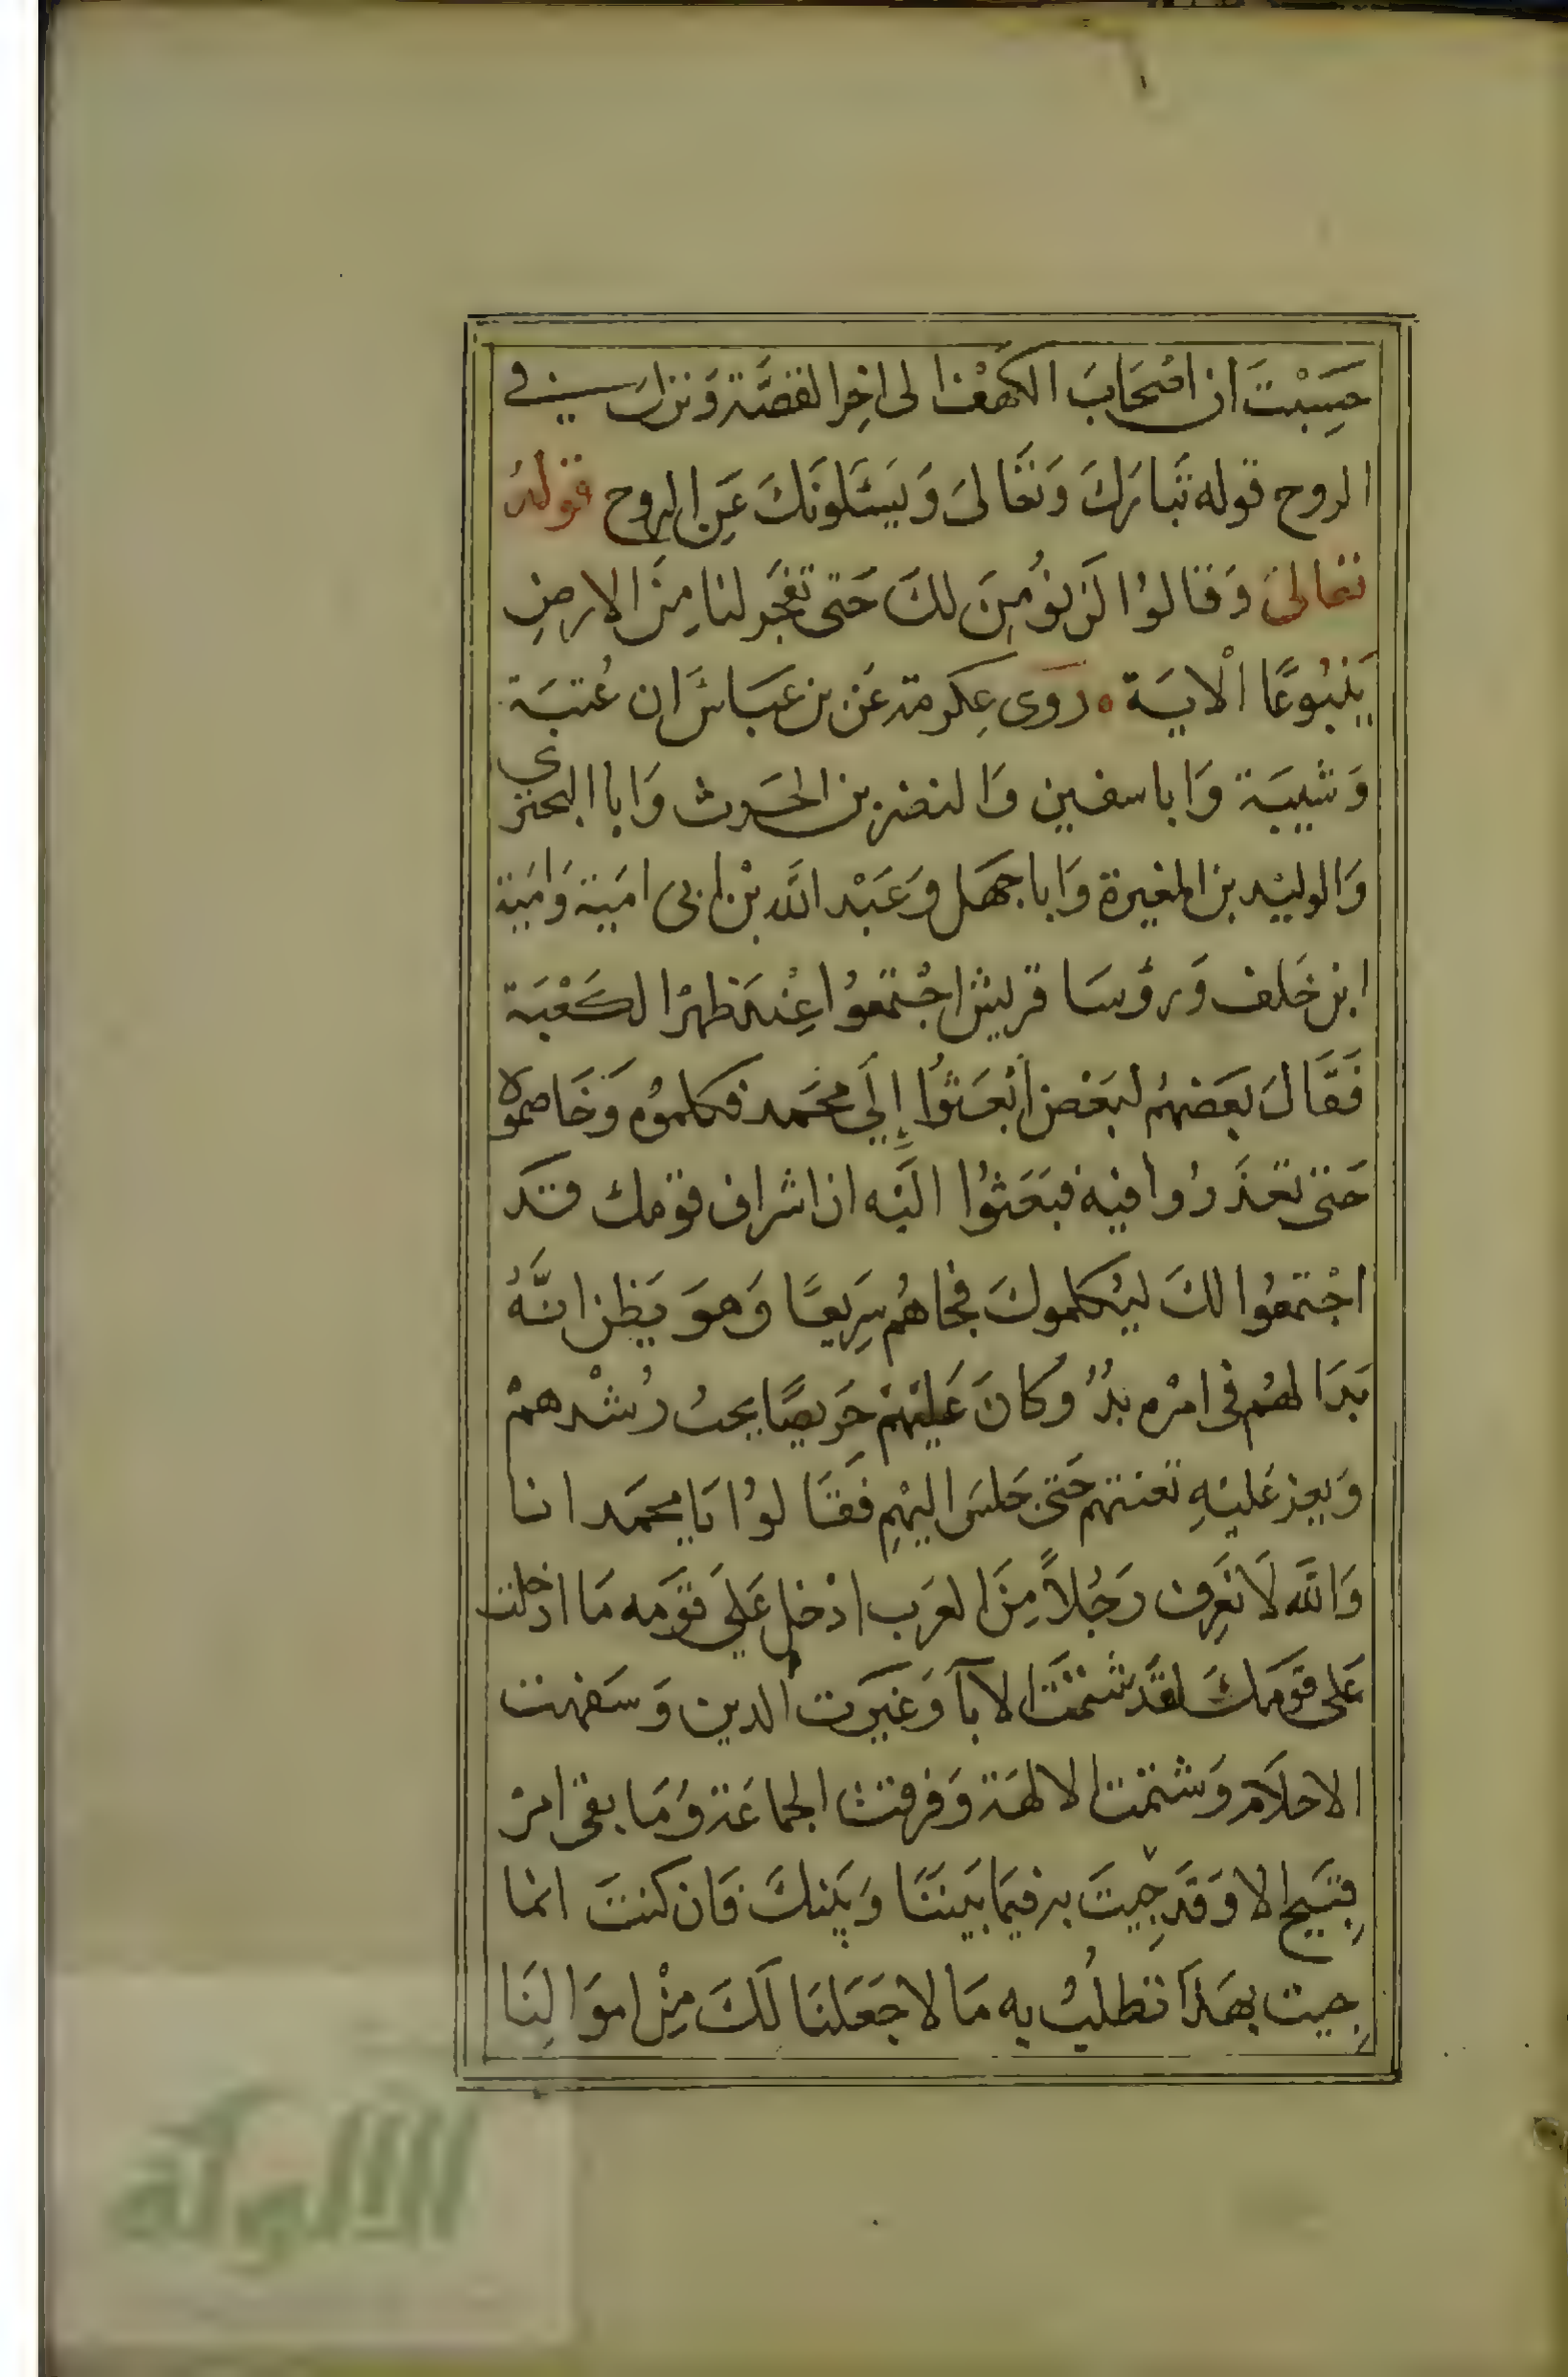 حَسِبْتَ ان اصْحَابَ الكهْف الى اخِر القصَّة وَنزل في
الروح قوله تَبارَكَ وَتعَالىَ وَيَسْئَلونَكَ عَنِ الروح قولهُ
تعالىَ وَقالوُا لَن نؤُمِنَ لكَ حَتى تفجَر لنا مِنَ الارضِ
يَنبُوعًا الْايَة ٥ روَى عِكرمة عَن بن عبَاسَ ان عُتبَة
وَشيبَة وَابا سفين وَالنضر بن الحَرث وَابا البحتري
وَالوليْد بن المغيرة وَابا جهَل وَعَبْد اللَّه بْن ابى اميَة وَاميَة
ابن خَلف وَرؤسَا قريش اجْتمَعوُا عِنْدَ ظهْر الكَعْبَة
فَقَالَ بَعَضهُم لبَعْض ابْعَثوُا إِلَى محَمَد فكلموُه وَخَاصموه
حَتى تعَذَرُوا فيْه فبَعَثوُا اليَه ان اشراف قوْمك قد
اجْتمَعوُا لكَ ليُكلموكَ فجاهُم سَرِيعًا وَهوَ يَظن انَّهُ
بَدَا لهُم فى امْره بدُُ وَكانَ عَليْهمْ حَريصًا يحبُ رُشْدهمْ
وَيعز عَليْهِ تعنتهم حَتى جَلسَ اليْهِم فَقَالوُا يَا محمَد انا
وَاللَّه لَا نَعرِف رَجُلاً مِنَ العَرَب ادْخل عَلىَ قوَمه مَا ادخلت
عَلى قوَمكَ لقَد شتمتَ الابآ وَغيرَت الدين وَسَفهت
الاحلَام وَشتمْت الالهَة وَفرقت الجماعَة وَمَا بقى امْر
قبَيح الا وَقدَ جِيتَ به فيمَا بَينَنَا وَبَيْنكَ فَان كنتَ انما
جِيت بهَذَا تطلُب به مَالا جَعَلنَا لَكَ مِنْ اموَالِنَا
الألوكة